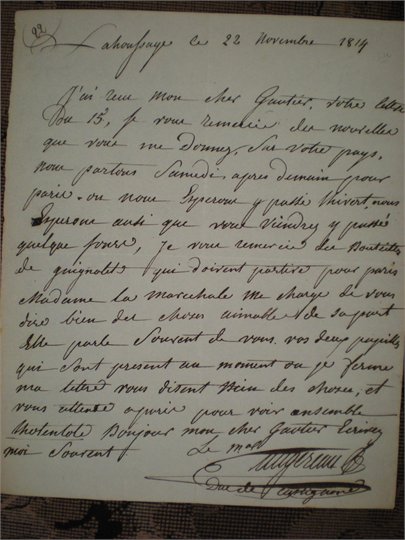 22
Lahoussaye le 22 Novembre 1814
J'ai recu mon cher Gautier, votre lettre
Du 15, je vous remercie des nouvelles
que vous me donnez, sur votre pays,
nous partons Samedi, apres demain pour
paris. ou nous Esperons y passé l'hivert, nous
Esperons aussi que vous viendrez y passé
quelque jours, Je vous remercie des Bouteilles
de guignolet qui doivent partire pour paris
Madame la marechale me charge de vous
dire bien des choses aimable de sa part
Elle parle Souvent de vous. vos deux pupilles
qui sont present au moment ou je ferme
ma letre vous disent bien des choses, et
vous attende a paris pour voir ensemble
Bonjour mon cher Gautier Ecrivez
moi Souvent Le mal
Augereau
Duc de Castiglione